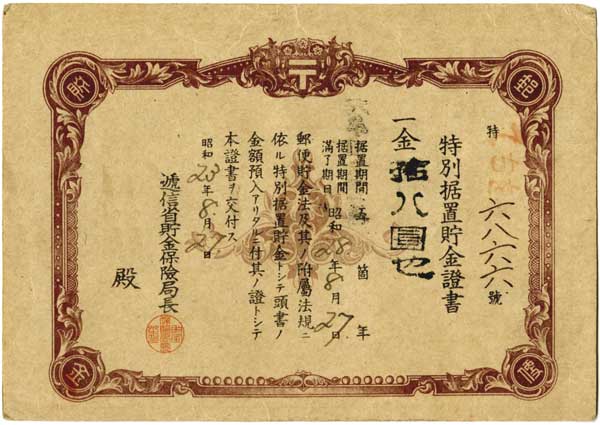 〒
特 六八六六號
特別据置貯金證書
一金拾八圓也
据置期間 五箇年
据置期間滿了期日 昭和28年8月27日
郵便貯金法及其ノ附屬法規ニ
依ル特別据置貯金トシテ頭書ノ
金額預入アリタルニ付其ノ證トシテ
本證書ヲ交付ス
昭和23年8月27日
遞信省貯金保險局長
殿
金